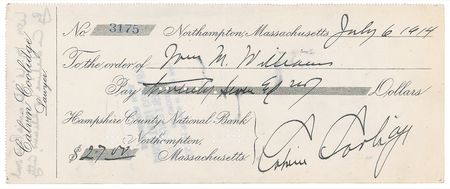 No 3175 Northampton, Massachusetts July 6 1914
To the order of Wm M. Williams
Pay Twenty Seven & no/100 Dollars
Hampshire County National Bank
Northampton,
$27.00 Massachusetts
Calvin Coolidge
Calvin Coolidge
Lawyer